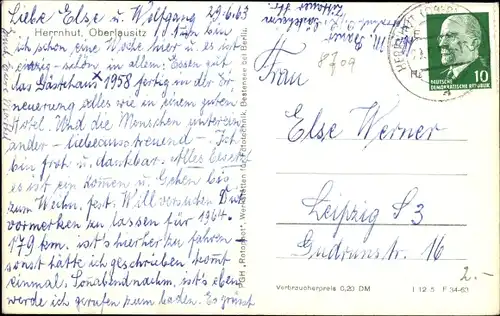 Liebe Else u. Wolfgang 29.6.63
Herrnhut, Oberlausitz
ich schon eine Woche hier u. es ist
einzig - schön in allem. Essen gut
das Gästehaus 1958 fertig in der Er
neuerung alles wie in einem guten
Hotel. Und die Menschen unterein
ander - liebeausstreuend - Ich
bin froh u. dankbar. Alles besetzt
es ist ein Kommen u. Gehen bis
zum Wochn. fest. Will versuchen Dich
vormerken zu lassen für 1964.
179 km. ist's hierher zu fahren
sonst hätte ich geschrieben kommt
einmal. Sonnabendnachm. ist's eben
werde ich gerufen zum baden. Es grüßt
PGH "Rotophot", Werkstätten für Fototechnik, Bestensee bei Berlin
8709
DEUTSCHE
DEMOKRATISCHE REPUBLIK
10
Frau
Else Werner
Leipzig S3
Gudrunstr. 16
2.-
Verbraucherpreis 0,20 DM
I 12 5 F 34-63